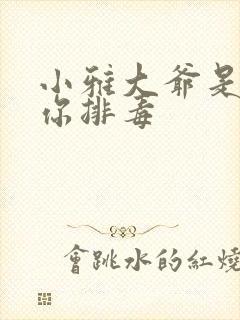 小雅大爷是
你排毒
會跳水的紅燒